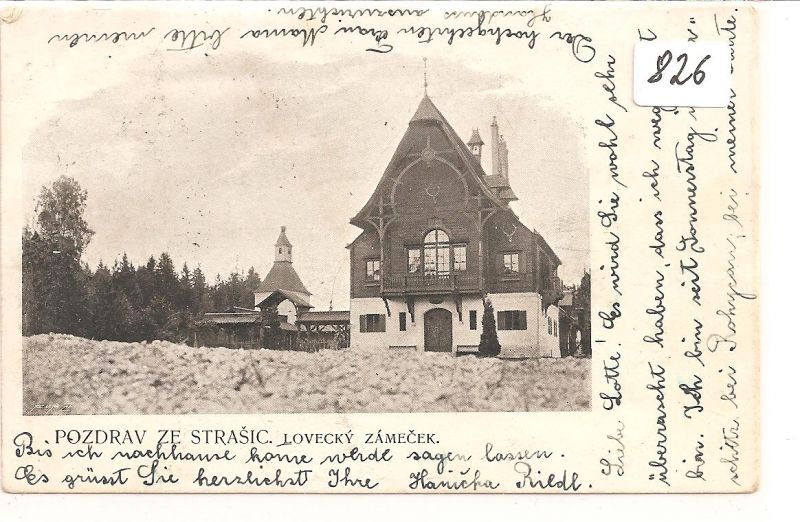 826
Liebe Lotte! Es wird Sie wohl sehr
überrascht haben, dass ich weg
bin. Ich bin seit Donnerstag in
schitz bei Rohycan, bei meiner Tante.
Bis ich nachhause kome werde sagen lassen.
Es grüsst Sie herzlichst Ihre Hanička Riedl.
Der hochgeehrten Frau Mama bitte meinen
Handkuss auszurichten.
POZDRAV ZE STRAŠIC. LOVECKÝ ZÁMEČEK.